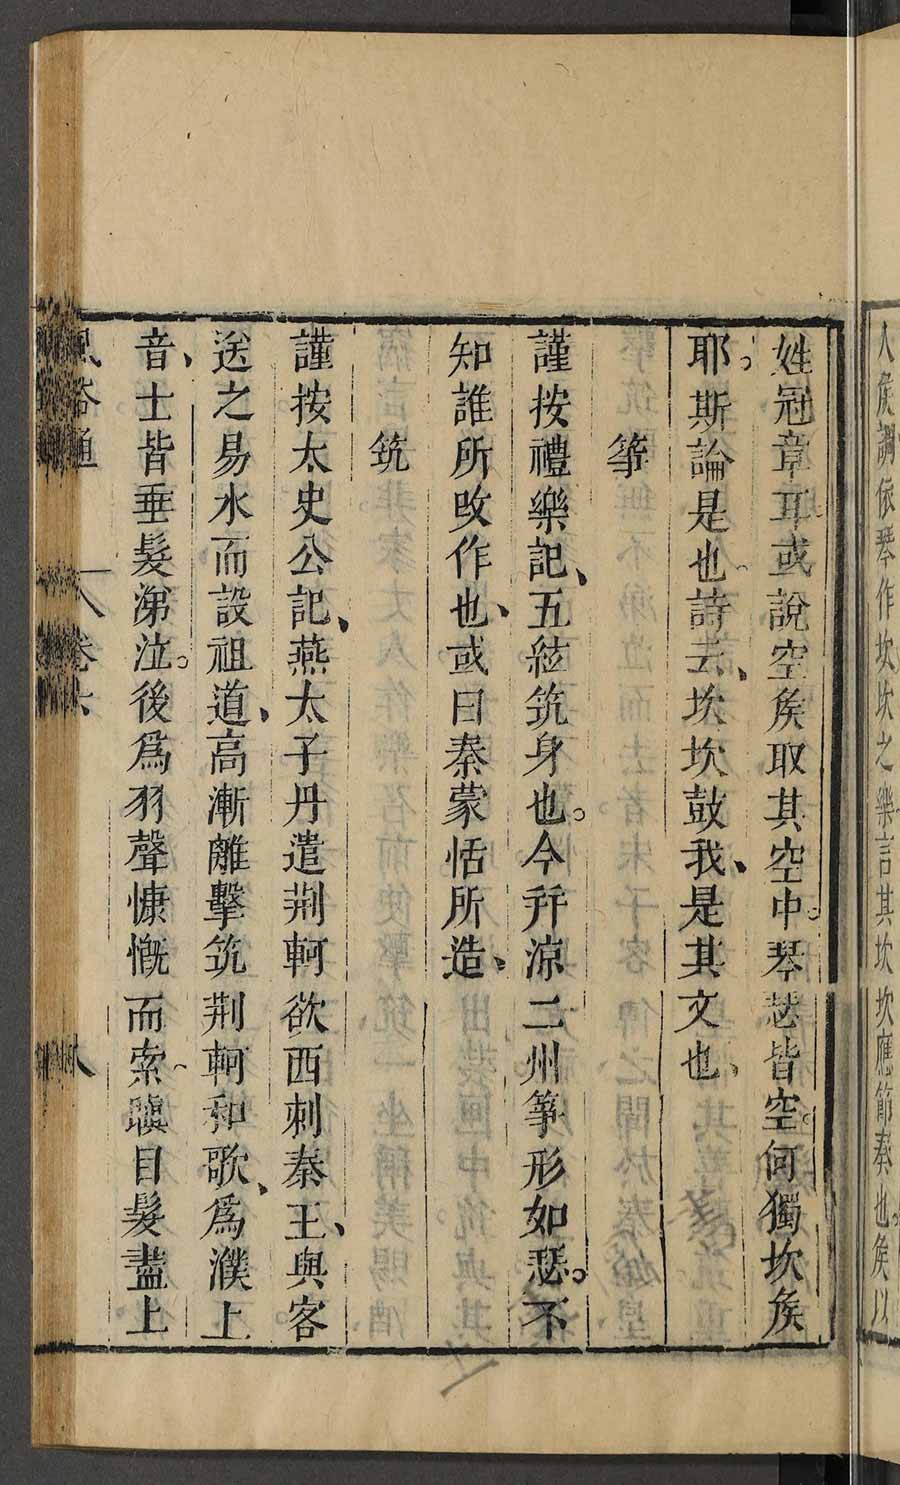 人矦調依琴作坎坎之樂言其坎坎應節奏也矦以
姓冠章耳或說空矦取其空中琴瑟皆空何獨坎矦
耶斯論是也詩云坎坎鼓我是其文也
箏
謹按禮樂記五絃筑身也今幷涼二州箏形如瑟不
知誰所改作也或曰秦蒙恬所造
筑
謹按太史公記燕太子丹遣荆軻欲西刺秦王與客
送之易水而設祖道高漸離擊筑荆軻和歌爲濮上
音士皆垂髮涕泣後爲羽聲慷慨而索瞋目髮盡上
風俗通 卷六 八